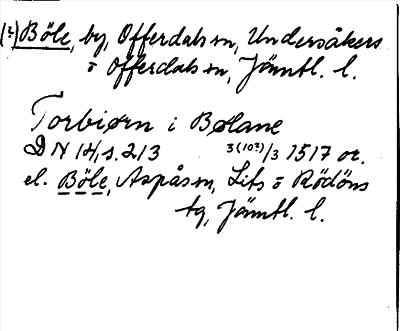 (?) Böle, by, Offerdals sn, Undersåkers
o Offerdals sn, Jämtl. l.
Torbiørn i Bølane
DN 14, s. 213 3(10?)/3 1517 or.
el. Böle, Aspås sn, Lits o Rödöns
tg, Jämtl. l.